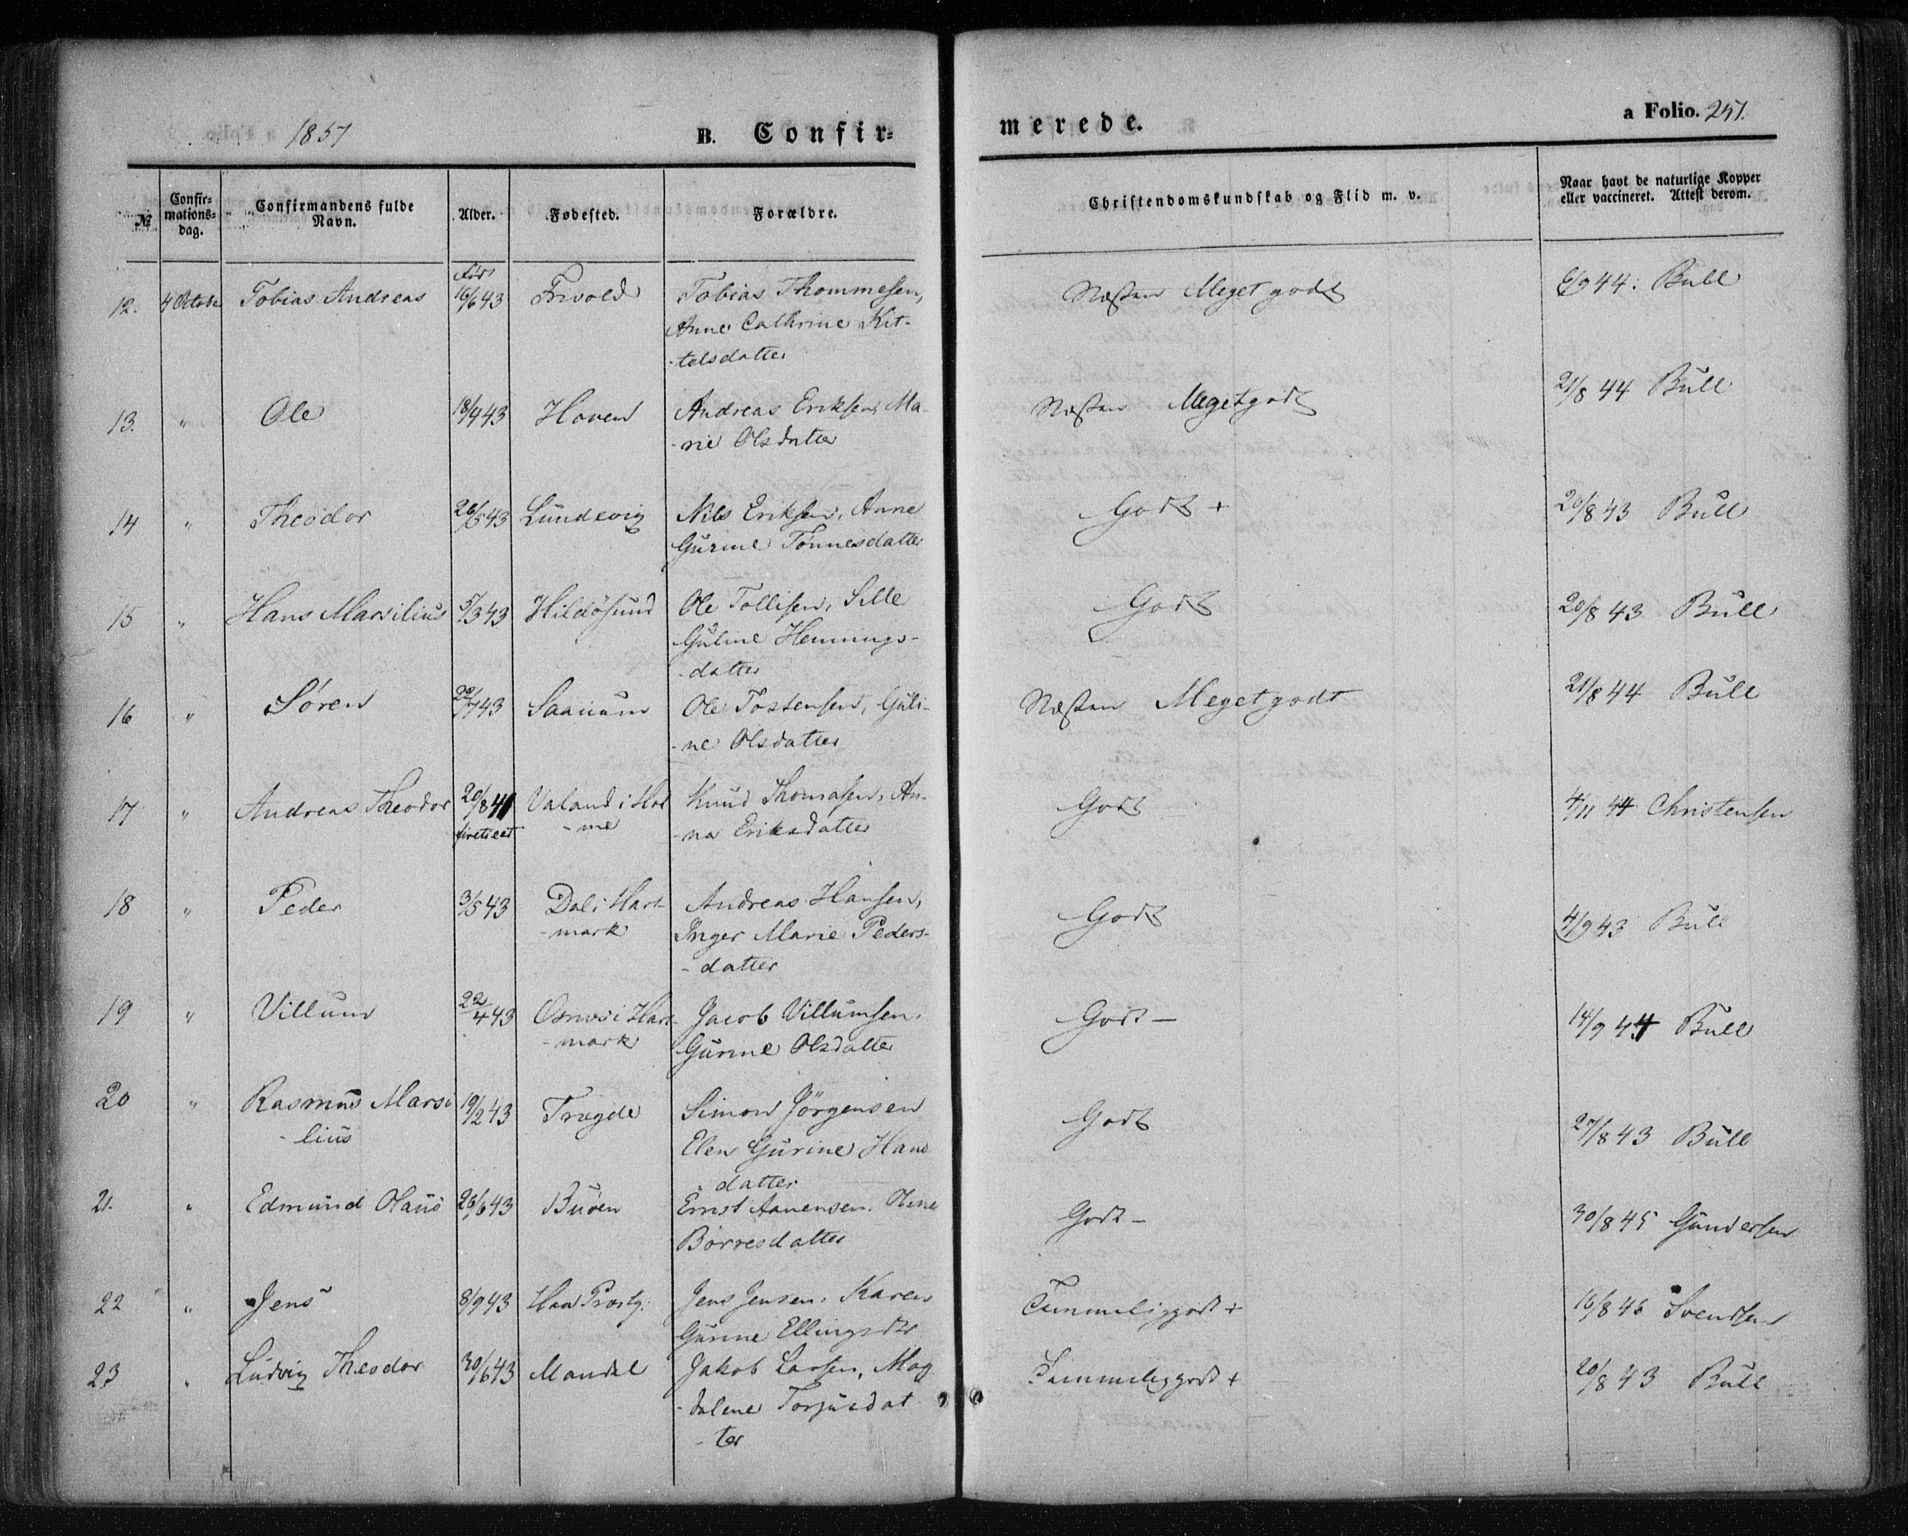 1857
B. Confir-
merede.
a Folio. 251.
№
Confir-
mations-
dag.
Confirmandens fulde
Navn.
Alder.
Fødested.
Forældre.
Christendomskundskab og Flid m. v.
Naar havt de naturlige Kopper
eller vaccineret. Attest derom.
12. 4 Octob Tobias Andreas 16/6 43 Frivold Tobias Thommesen, Næsten Meget godt 6/9 44: Bull
Anne Cathrine Kit-
-telsdatter
13. " Ole 18/9 43 Hoven Andreas Eriksen, Ma- Næsten Megetgodt 21/8 44 Bull
-rie Olsdatter
14 " Theodor 26/5 43 Lundevig Nils Eriksen, Anne Godt + 20/8 43 Bull
Gurine Tønnesdatter
15 " Hans Marsilius 5/3 43 Hildøsund Ole Tollisen, Sille Godt 20/8 43 Bull
Guline Hennings-
-datter
16 " Søren 43 Saanum Ole Tostensen, Guli- Næsten Megetgodt 21/8 44 Bull
-ne Olsdatter
17 " Andreas Theodor 20/8 41 Valand i Hol Knud Thomasen, An- Godt 4/11 44 Christensen
-me -na Eriksdatter
18 " Peder 3/5 43 Dal i Hart Andreas Hansen, Godt 4/9 43 Bull
-mark Inger Marie Peders-
-datter
19 " Villum 22/4 43 Osnes i Hart Jacob Villumsen, Godt - 14/9 44 Bull
-mark Gurine Olsdatter
20 " Rasmus Marsi 19/2 43 Trægde Simon Jörgensen Godt 27/8 43 Bull
-lius Elen Gurine Hans
datter
21. " Edmund Olaus 26/6 43 Buöen Ernst Aanensen, Oline Godt - 30/8 45 Gundersen
Börresdatter
22 " Jens 8/9 43 Haa Præstg: Jens Jensen, Karen Temmeliggodt + 16/8 46 Svendsen
Gurine Ellingsdtr
23 " Ludvig Theodor 30/6 43 Mandal Jakob Larsen, Mag Temmeliggodt + 20/8 43 Bull
-dalene Torjusdat
-ter